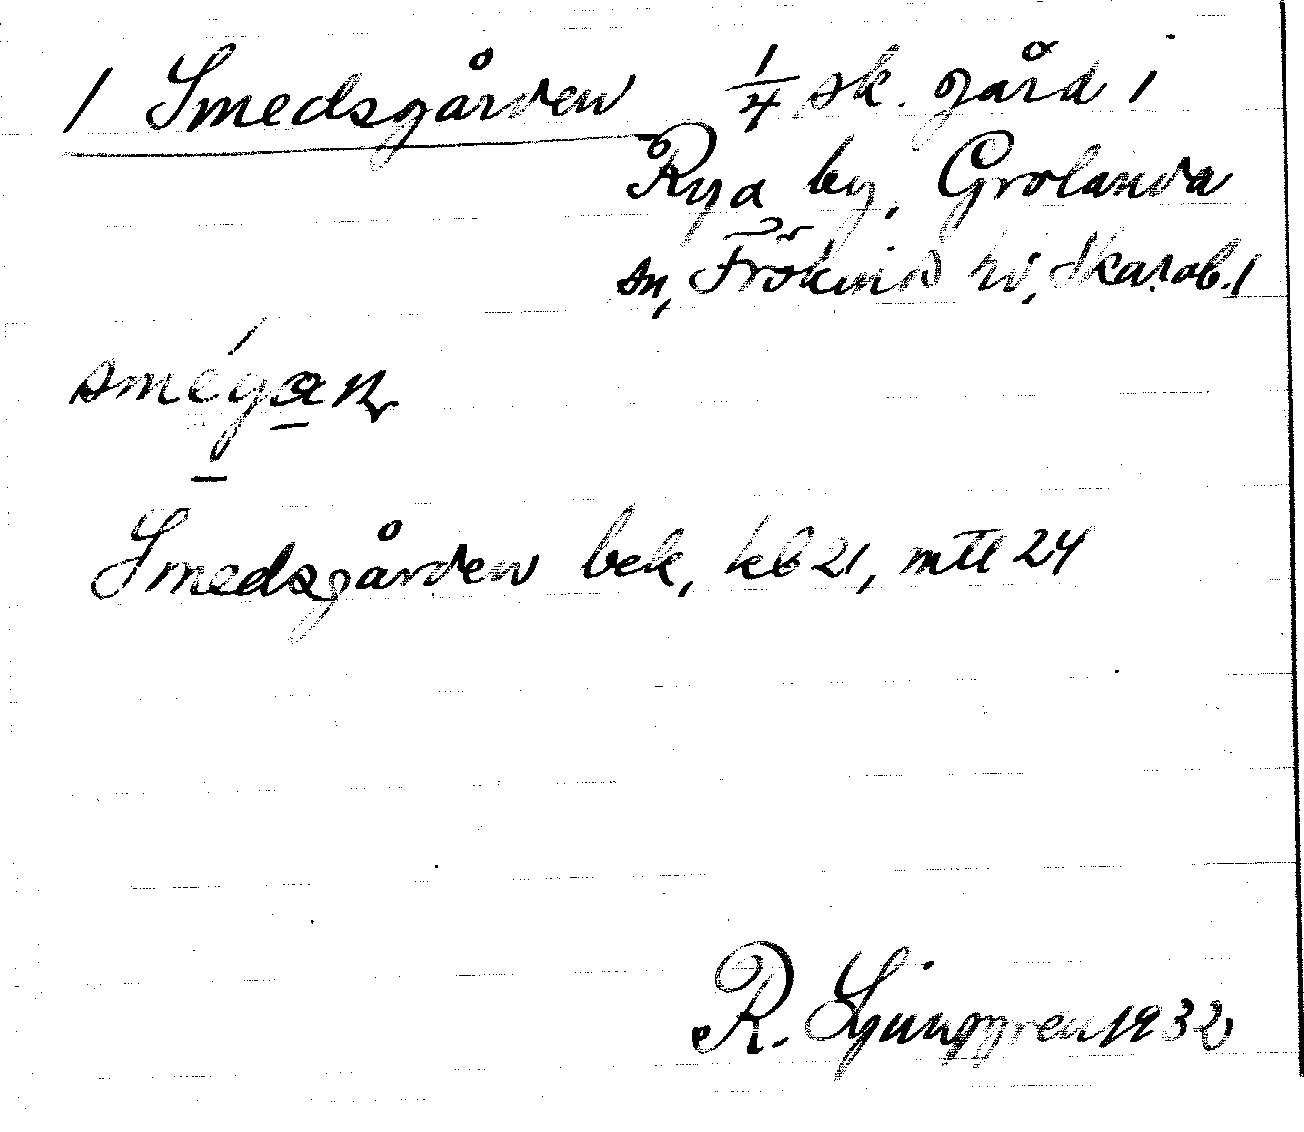 1 Smedsgården 1/4 sk. gård i
Rya by, Grolanda
sn, Frökind hd, Skarab. l
Smedsgården bek, kb 21, mtl 24
R. Ljunggren 1932